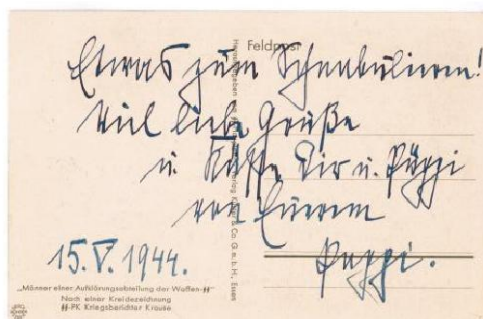 Feldpost
Etwas zum Schnabulieren!
Viel liebe Grüße
u. Küsse Dir u. Puppi
von Eurem
Pappi.
15.V.1944.
„Männer einer Aufklärungsabteilung der Waffen-SS"
Nach einer Kreidezeichnung
SS-PK Kriegsberichter Krause
Co. G.m.b.H., Essen